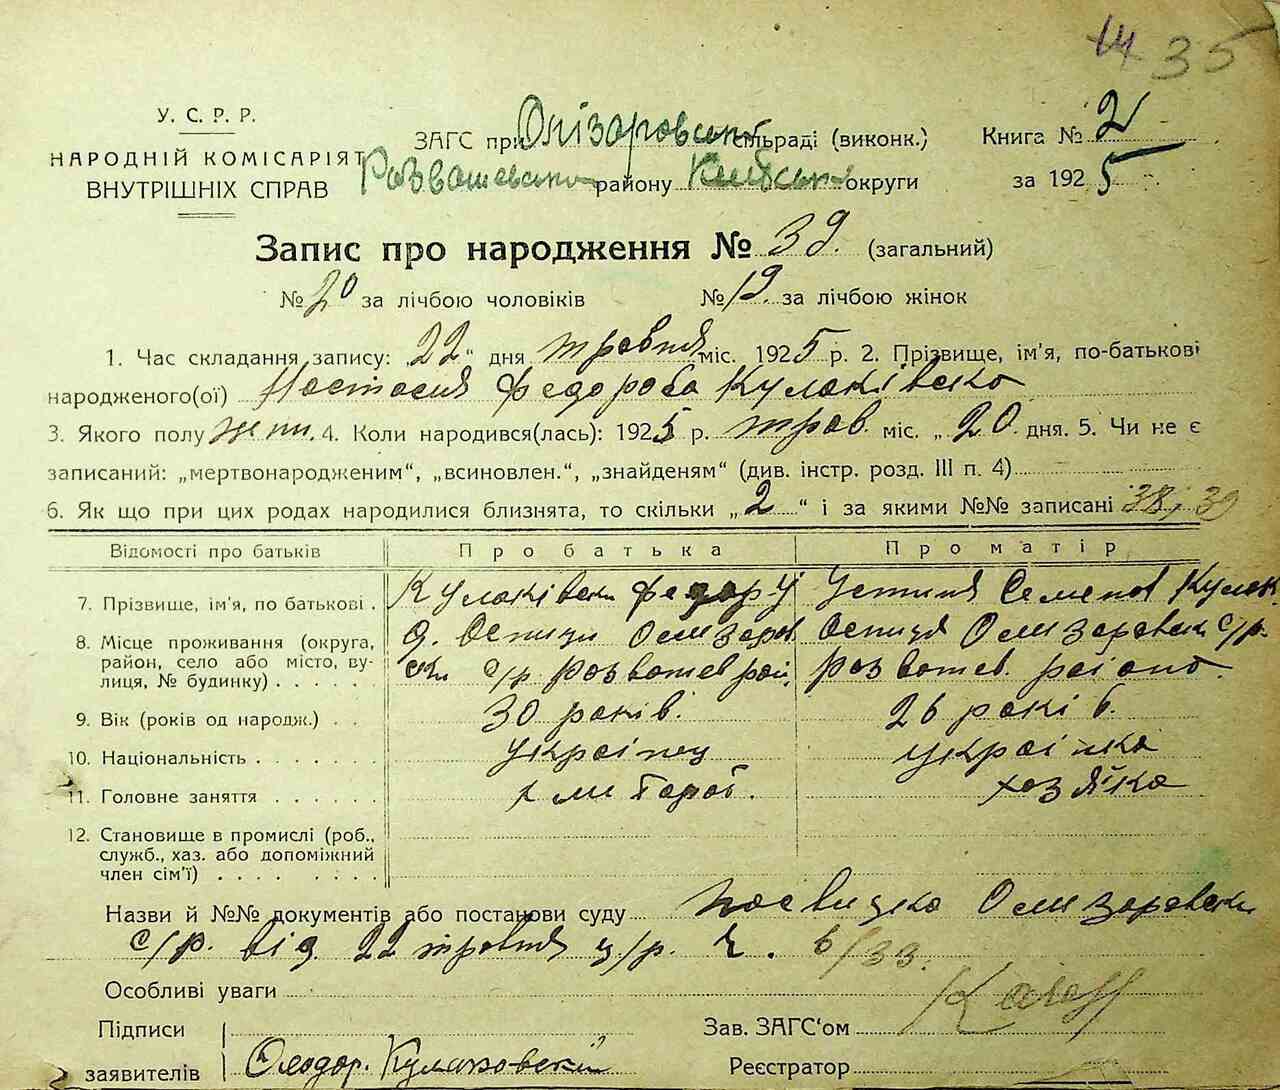 14 35
У. С. Р. Р.
НАРОДНІЙ КОМІСАРІЯТ
ВНУТРІШНІХ СПРАВ
ЗАГС при Олізаровській сільраді (виконк.) Книга № 2
району округи за 1925
Запис про народження № 39. (загальний)
№ 20 за лічбою чоловіків № 19. за лічбою жінок
1. Час складання запису: 22 " дня травня міс. 1925 р. 2. Прізвище, ім'я, по-батькові
народженого(ої) Настасия Федорова Кулаківска
3. Якого полу жін. 4. Коли народився(лась): 1925 р. трав. міс. „ 20. дня. 5. Чи не є
записаний: „мертвонародженим“, „всиновлен.“, „знайденям“ (див. інстр. розд. III п. 4)
6. Як що при цих родах народилися близнята, то скільки „ 2 “ і за якими №№ записані 38, 39
Відомості про батьків Про батька Про матір
7. Прізвище, ім'я, по батькові . Кулаківськ Федор Устиня Семенов Кулак.
8. Місце проживання (округа,
район, село або місто, ву-
лиця, № будинку) . . . . . с/р Розважев рай. Розважев. району.
9. Вік (років од народж.) . . 30 років. 26 років.
10. Національність . . . . . . . українец українка
11. Головне заняття . . . . . . хлибороб. хозяйка
12. Становище в промислі (роб.,
служб., хаз. або допоміжний
член сім'ї) . . . . . . . . .
Назви й №№ документів або постанови суду
с/р. від 22 травня ц/р. ч. 6/33.
Особливі уваги
Підписи Зав. ЗАГС'ом
заявителів Кулаковскій Реєстратор